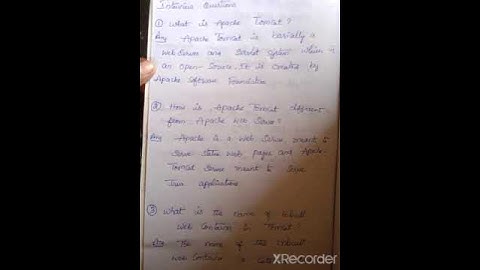 Interview Questions
① What is Apache Tomcat?
Ans Apache Tomcat is basically a
Web Server and Servlet system which is
an open-source. It is created by
Apache Software Foundation
② How is Apache Tomcat different
from Apache Web Server?
Ans Apache is a web Server meant to
Serve static web pages and Apache
Tomcat Serve meant to
Java applications
③ What is the name of inbuilt
Web Container in Tomcat?
Ans The name of the inbuilt
web container is
XRecorder